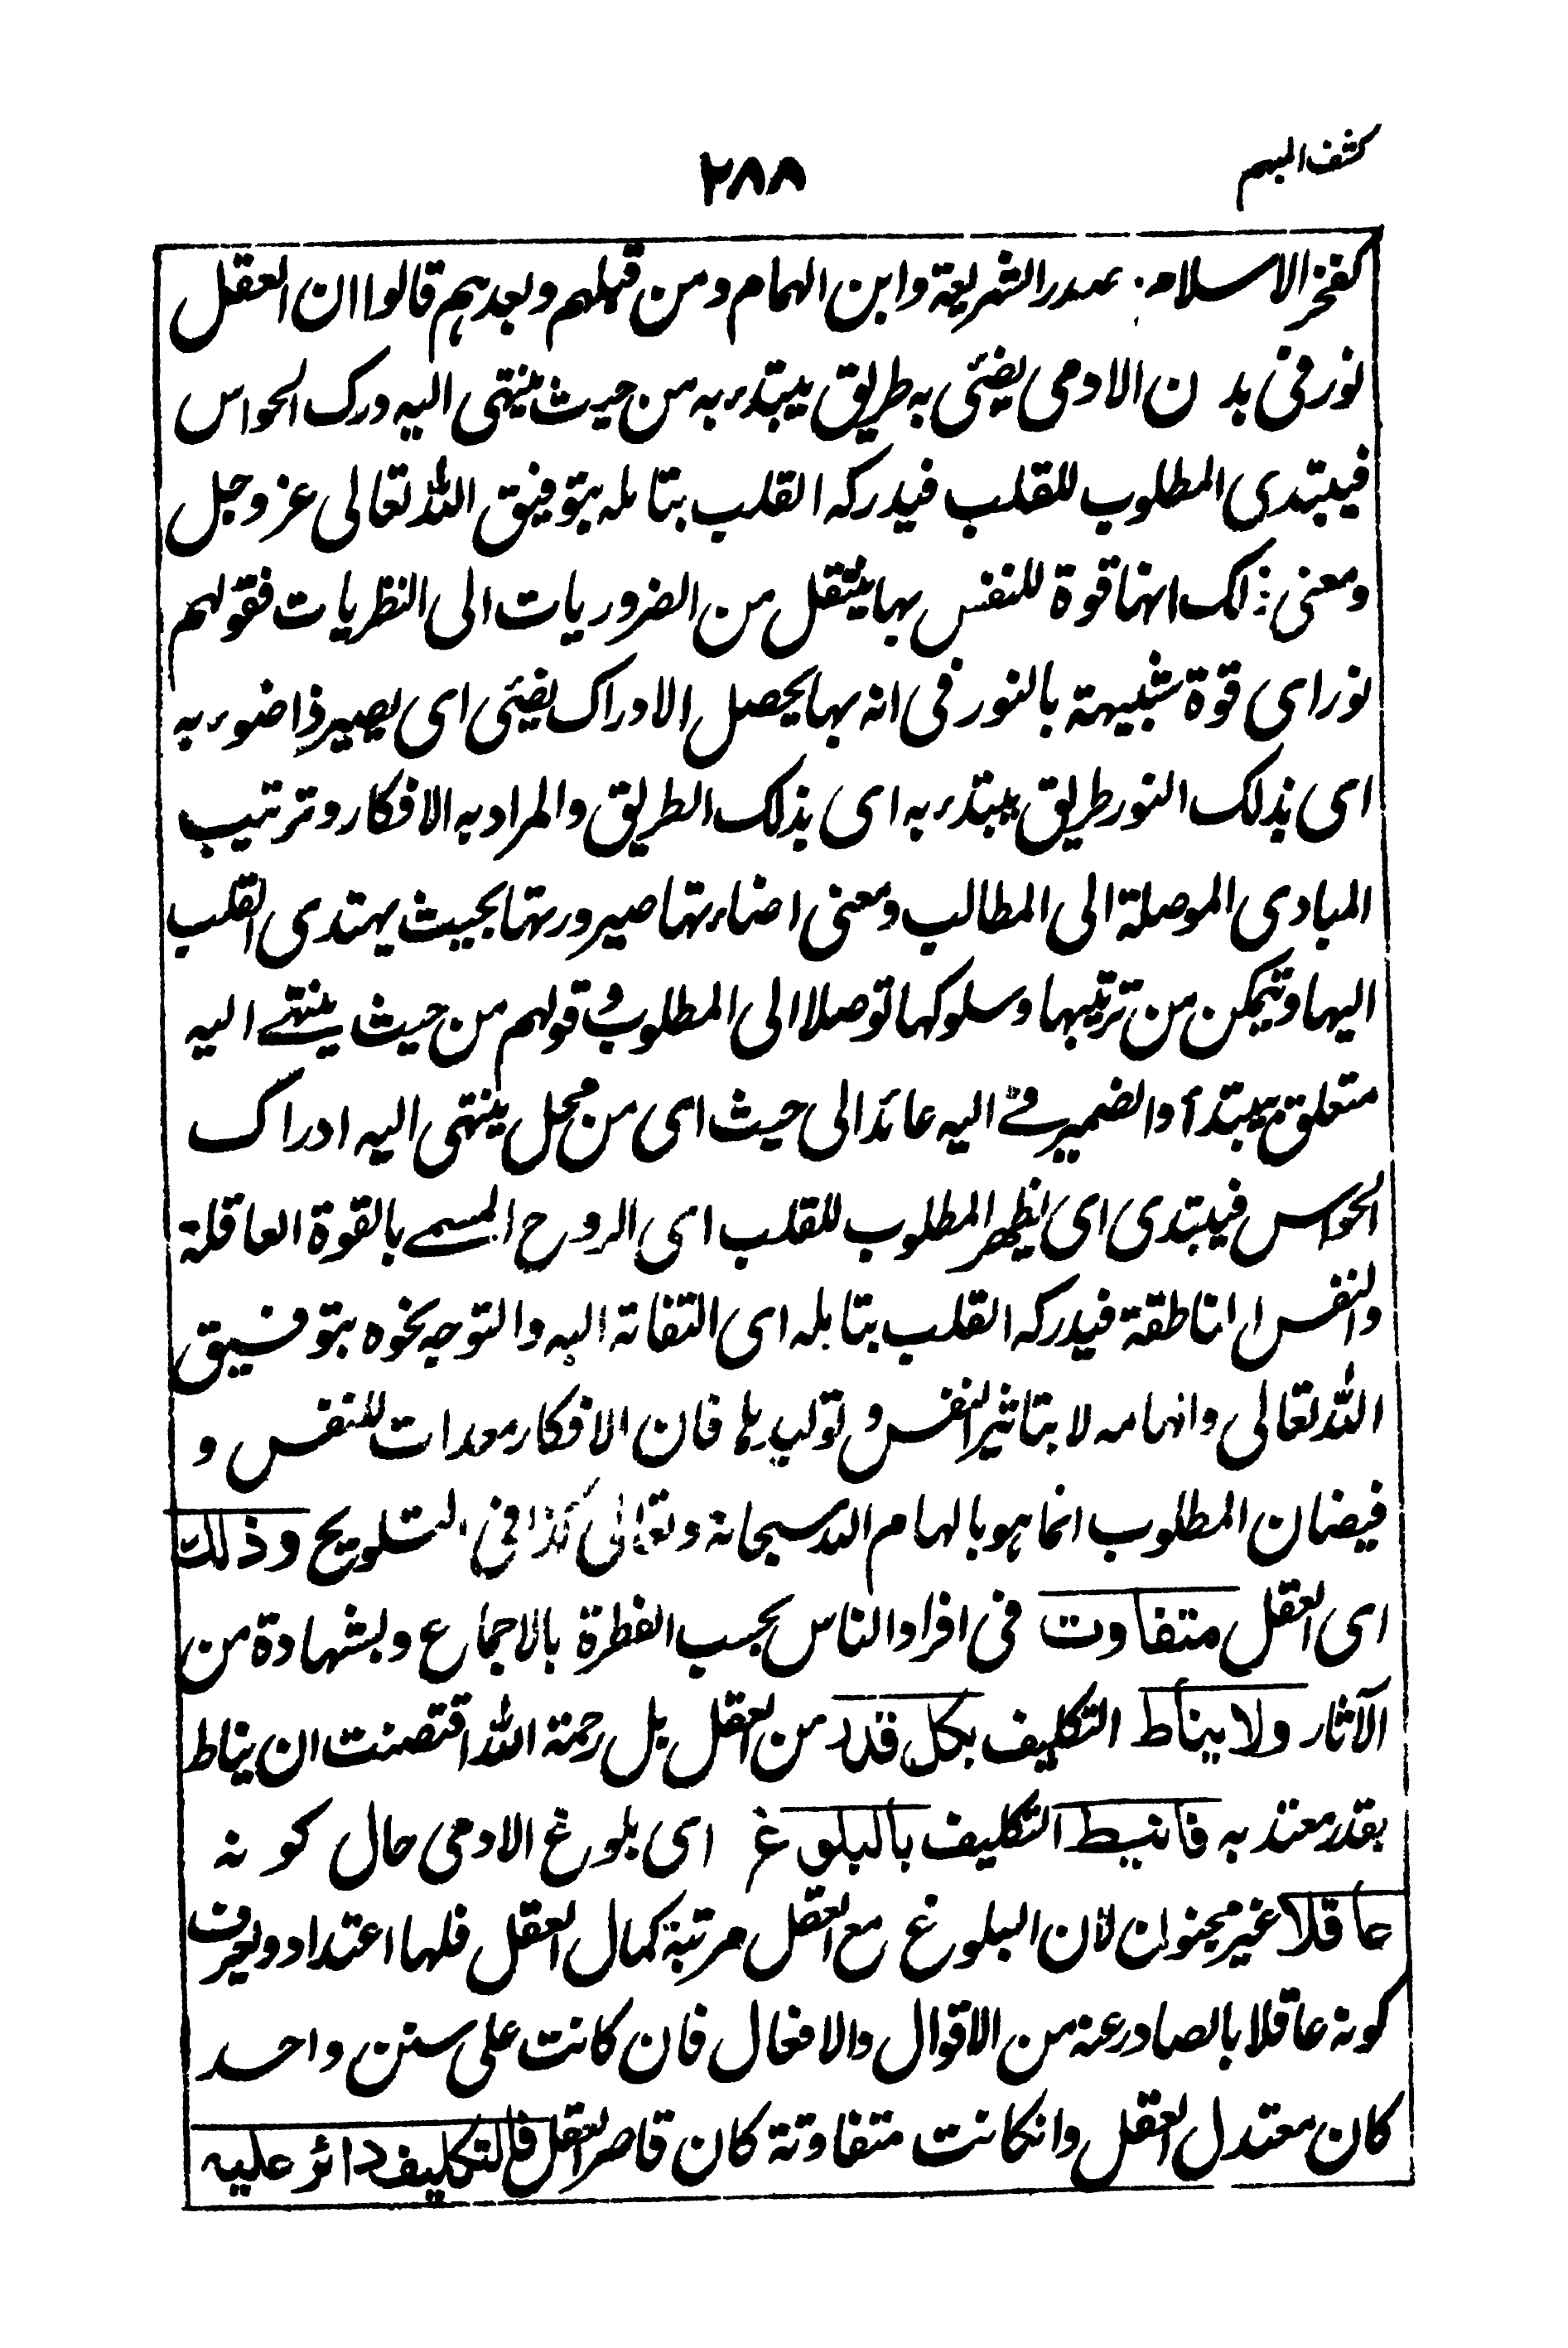 كشف المبهم
٢٨٨
كفخر الاسلام وصدر الشريعة وابن الهمام ومن قبلهم وبعدهم قالوا ان العقل
نور فى بدن الادمى يضئى به طريق يبتدء به من حيث ينتهى اليه درك الحواس
فيبتدى المطلوب للقلب فيدركه القلب بتامله بتوفيق الله تعالى عز وجل
ومعنى ذلك انها قوة للنفس بها ينتقل من الضروريات الى النظريات فقولهم
نور اى قوة شبيهة بالنور فى انه بها يحصل الادراك يضئى اى يصير ذا ضوء به
اى بذلك النور طريق يبتدء به اى بذلك الطريق والمراد به الافكار وترتيب
المبادى الموصلة الى المطالب ومعنى اضاءتها صيرورتها بحيث يهتدى القلب
اليها ويتمكن من ترتيبها وسلوكها توصلا الى المطلوب وقولهم من حيث ينتهى اليه
متعلق بيبتدأ والضمير فى اليه عائد الى حيث اى من محل ينتهى اليه ادراك
الحواس فيبتدى اى يظهر المطلوب للقلب اى الروح المسمى بالقوة العاقلة
والنفس الناطقة فيدركه القلب بتامله اى التفاته اليه والتوجه نحوه بتوفيق
الله تعالى والهامه لا بتاثير النفس وتوليدها فان الافكار معدات للنفس و
فيضان المطلوب انما هو بالهام الله سبحانه وتعالى كذا فى التلويح وذلك
اى العقل متفاوت فى افراد الناس بحسب الفطرة بالاجماع وبشهادة من
الآثار ولا يناط التكليف بكل قدر من العقل بل رحمة الله اقتضت ان يناط
بقدر معتد به فانيط التكليف بالبلوغ اى بلوغ الادمى حال كونه
عاقلا غير مجنون لان البلوغ مع العقل مرتبة كمال العقل فلها اعتداد ويعرف
كونه عاقلا بالصادر عنه من الاقوال والافعال فان كانت على سنن واحد
كان معتدل العقل وانكانت متفاوتة كان قاصر العقل فالتكليف دائر عليه